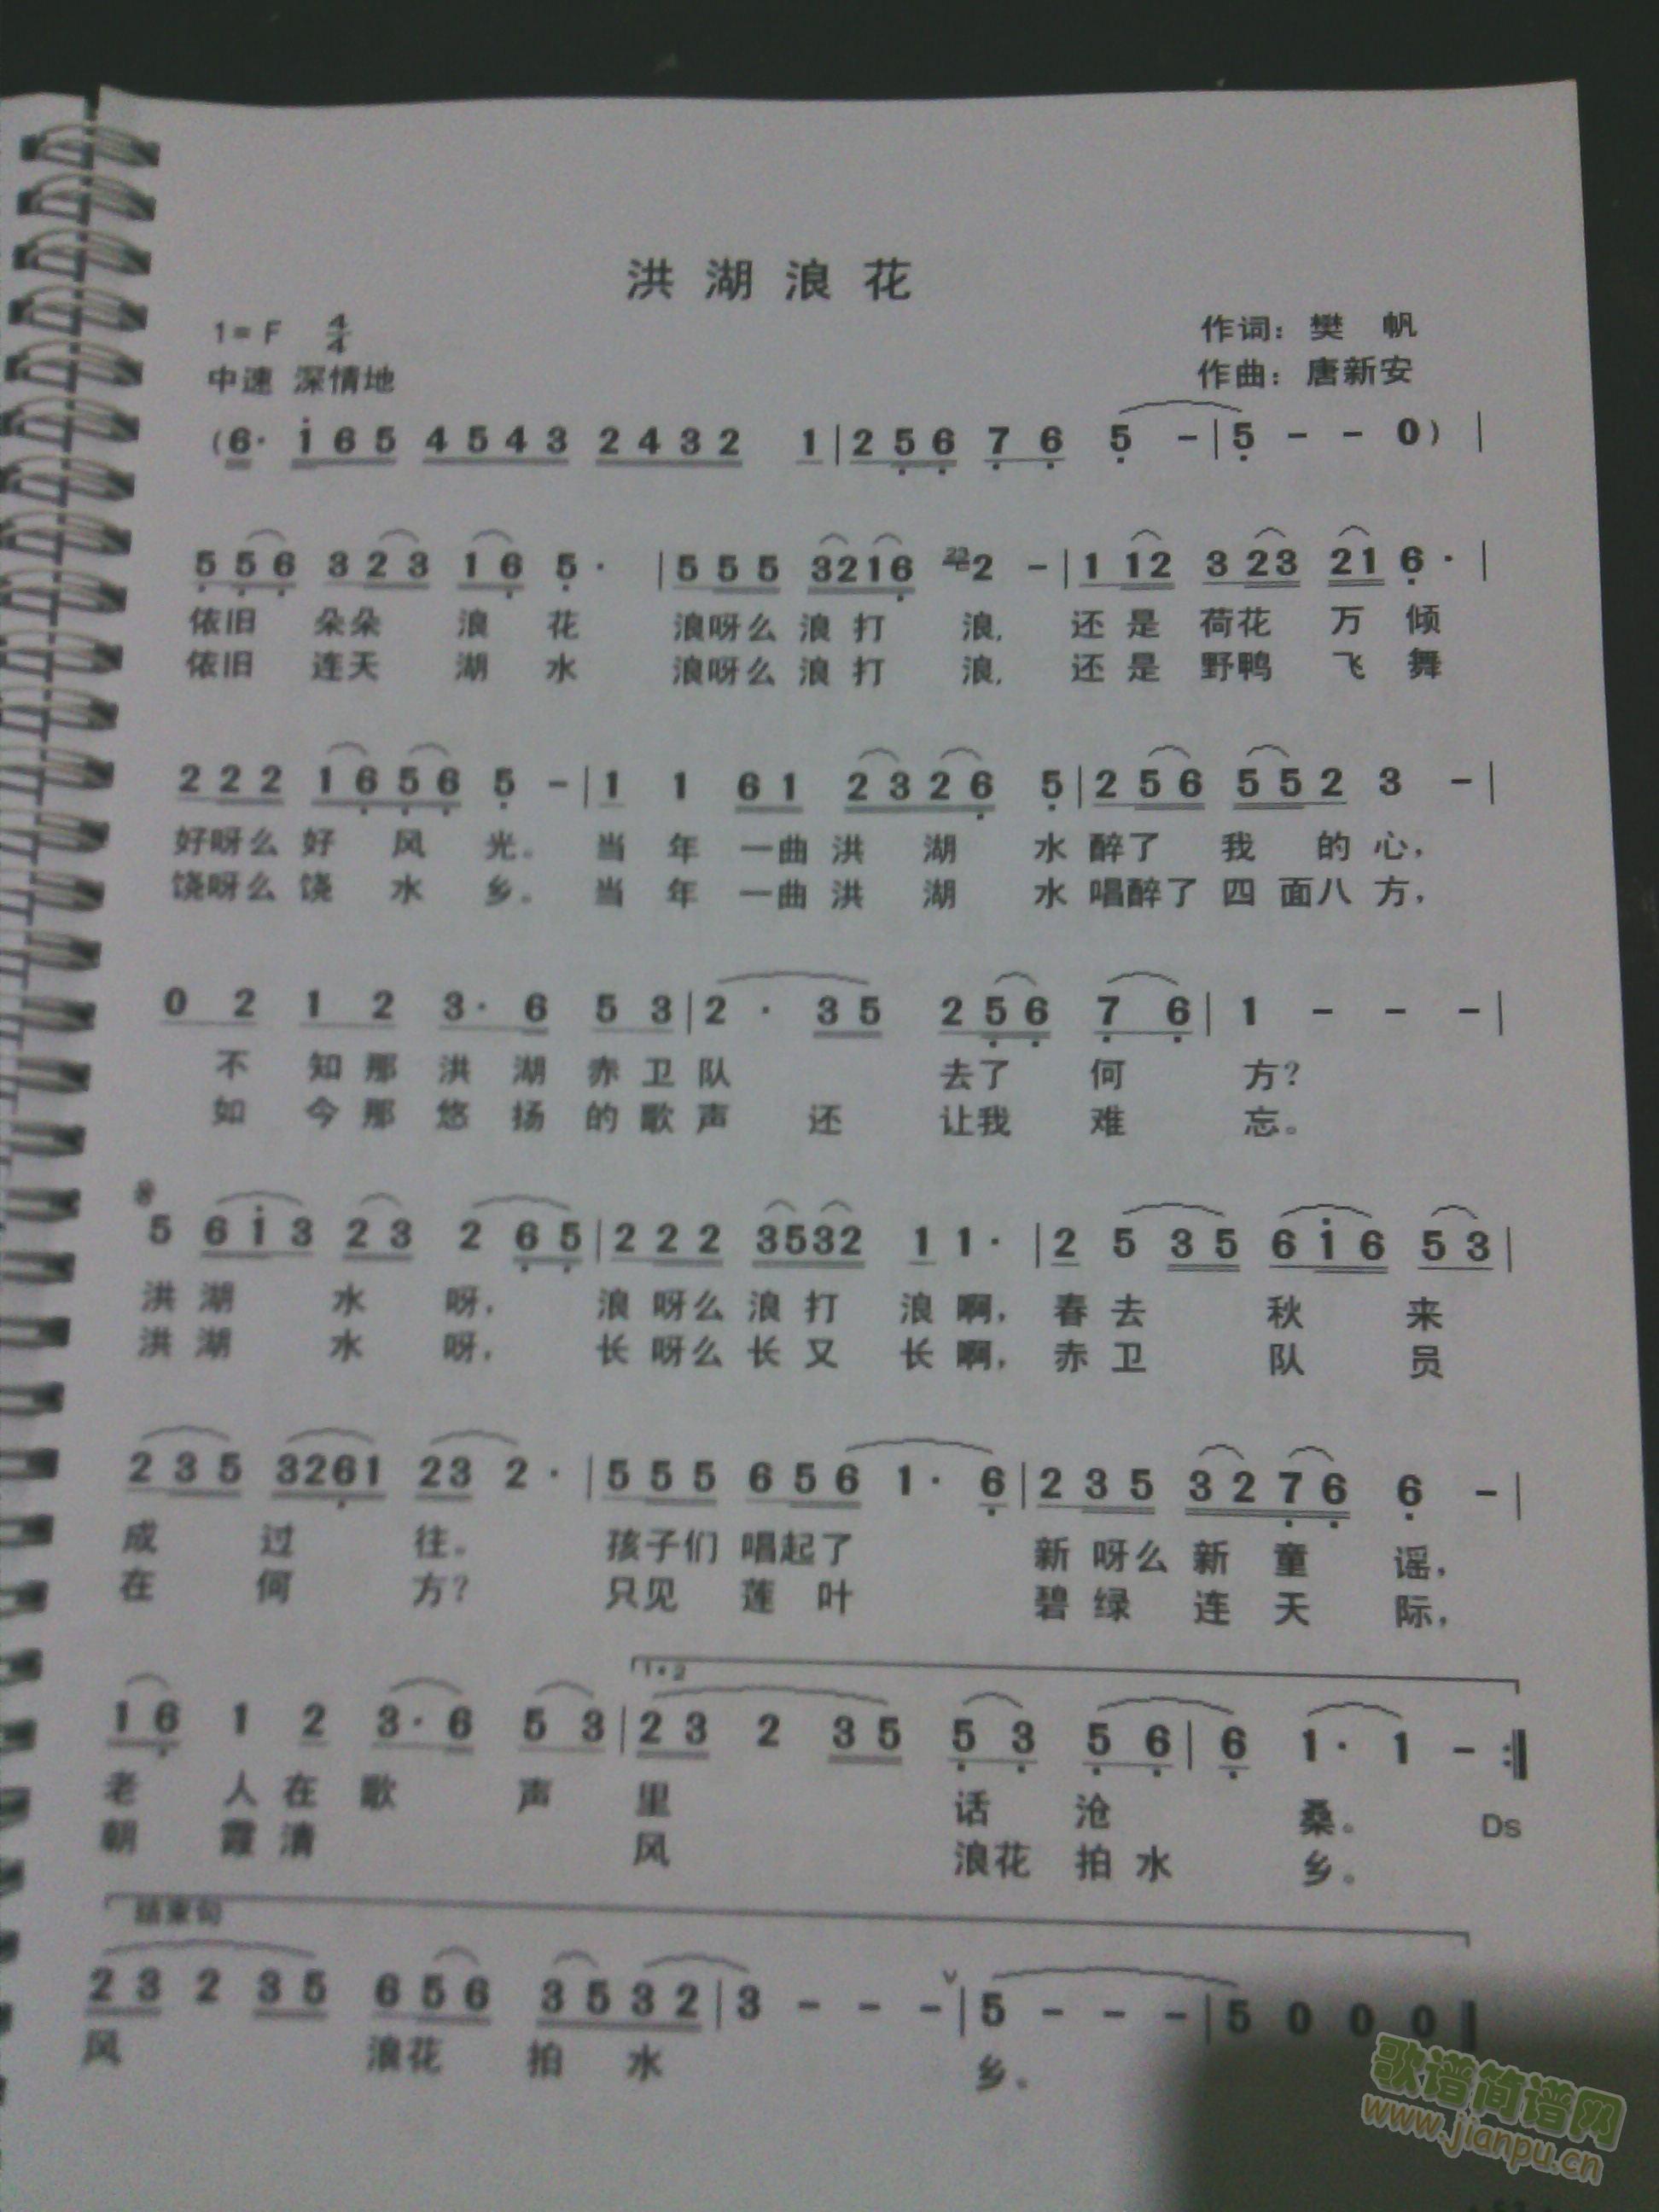 洪湖浪花
1=F 4/4
作词：樊 帆
中速 深情地
作曲：唐新安
(6· i 6 5 4 5 4 3 2 4 3 2 1 | 2 5 6 7 6 5 - | 5 - - 0) |
5 5 6 3 2 3 1 6 5· | 5 5 5 3 2 1 6 22 2 - | 1 1 2 3 2 3 2 1 6· |
依旧 朵朵 浪 花 浪呀么 浪 打 浪, 还 是 荷花 万 倾
依旧 连天 湖 水 浪呀么 浪 打 浪, 还 是 野鸭 飞 舞
2 2 2 1 6 5 6 5 - | 1 1 6 1 2 3 2 6 5 | 2 5 6 5 5 2 3 - |
好呀么 好 风 光。 当 年 一曲 洪 湖 水 醉了 我 的 心,
饶呀么 饶 水 乡。 当 年 一曲 洪 湖 水 唱醉了 四 面 八 方,
0 2 1 2 3· 6 5 3 | 2 · 3 5 2 5 6 7 6 | 1 - - - |
不 知 那 洪 湖 赤 卫 队 去了 何 方?
如 今 那 悠 扬 的 歌 声 还 让我 难 忘。
5 6 i 3 2 3 2 6 5 | 2 2 2 3 5 3 2 1 1· | 2 5 3 5 6 i 6 5 3 |
洪 湖 水 呀, 浪 呀么 浪 打 浪 啊, 春 去 秋 来
洪 湖 水 呀, 长 呀么 长 又 长 啊, 赤 卫 队 员
2 3 5 3 2 6 1 2 3 2 · | 5 5 5 6 5 6 1 · 6 | 2 3 5 3 2 7 6 6 - |
成 过 往。 孩子们 唱起了 新 呀么 新 童 谣,
在 何 方? 只见 莲 叶 碧 绿 连 天 际,
1·2
1 6 1 2 3· 6 5 3 | 2 3 2 3 5 5 3 5 6 | 6 1· 1 - :‖
老 人 在 歌 声 里 话 沧 桑。 Ds
朝 霞 清 风 浪花 拍 水 乡。
结束句
2 3 2 3 5 6 5 6 3 5 3 2 | 3 - - - ∨ | 5 - - - | 5 0 0 0 ‖
风 浪花 拍 水 乡。
歌谱简谱网
www.jianpu.cn